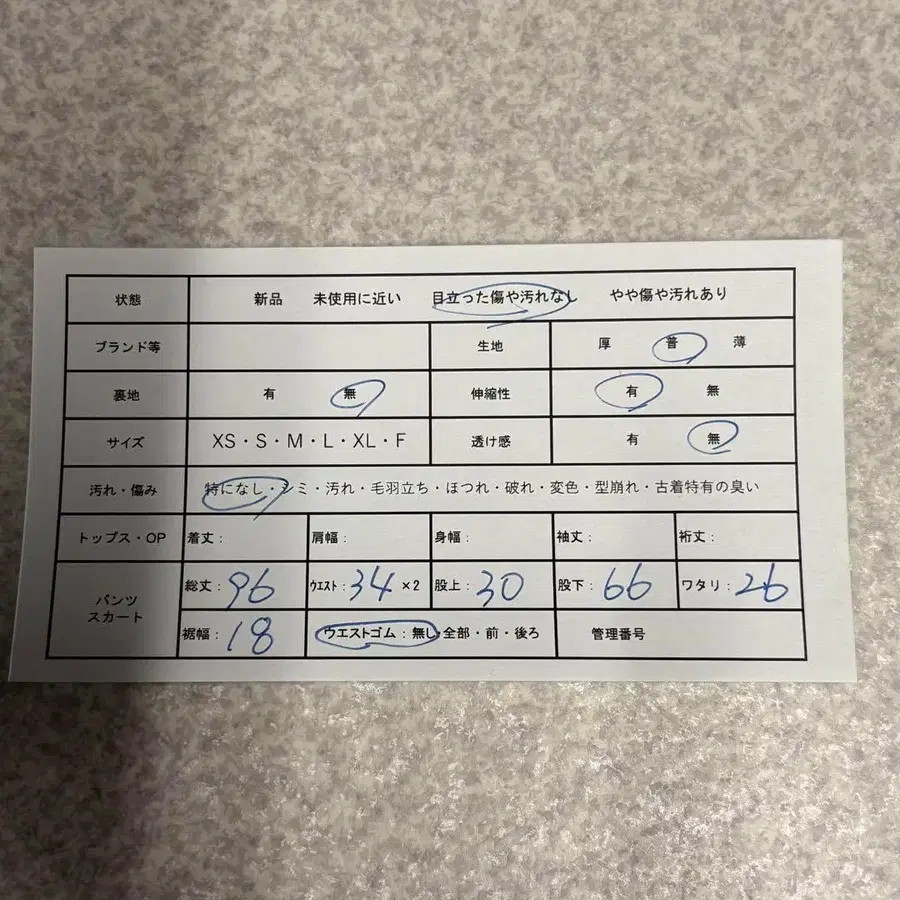 状態 新品 未使用に近い 目立った傷や汚れなし やや傷や汚れあり
ブランド等 生地 厚 普 薄
裏地 有 無 伸縮性 有 無
サイズ XS・S・M・L・XL・F 透け感 有 無
汚れ・傷み 特になし・シミ・汚れ・毛羽立ち・ほつれ・破れ・変色・型崩れ・古着特有の臭い
トップス・OP 着丈: 肩幅: 身幅: 袖丈: 裄丈:
パンツ スカート 総丈:96 ウエスト:34×2 股上:30 股下:66 ワタリ:26
裾幅:18 ウエストゴム:無し・全部・前・後ろ 管理番号